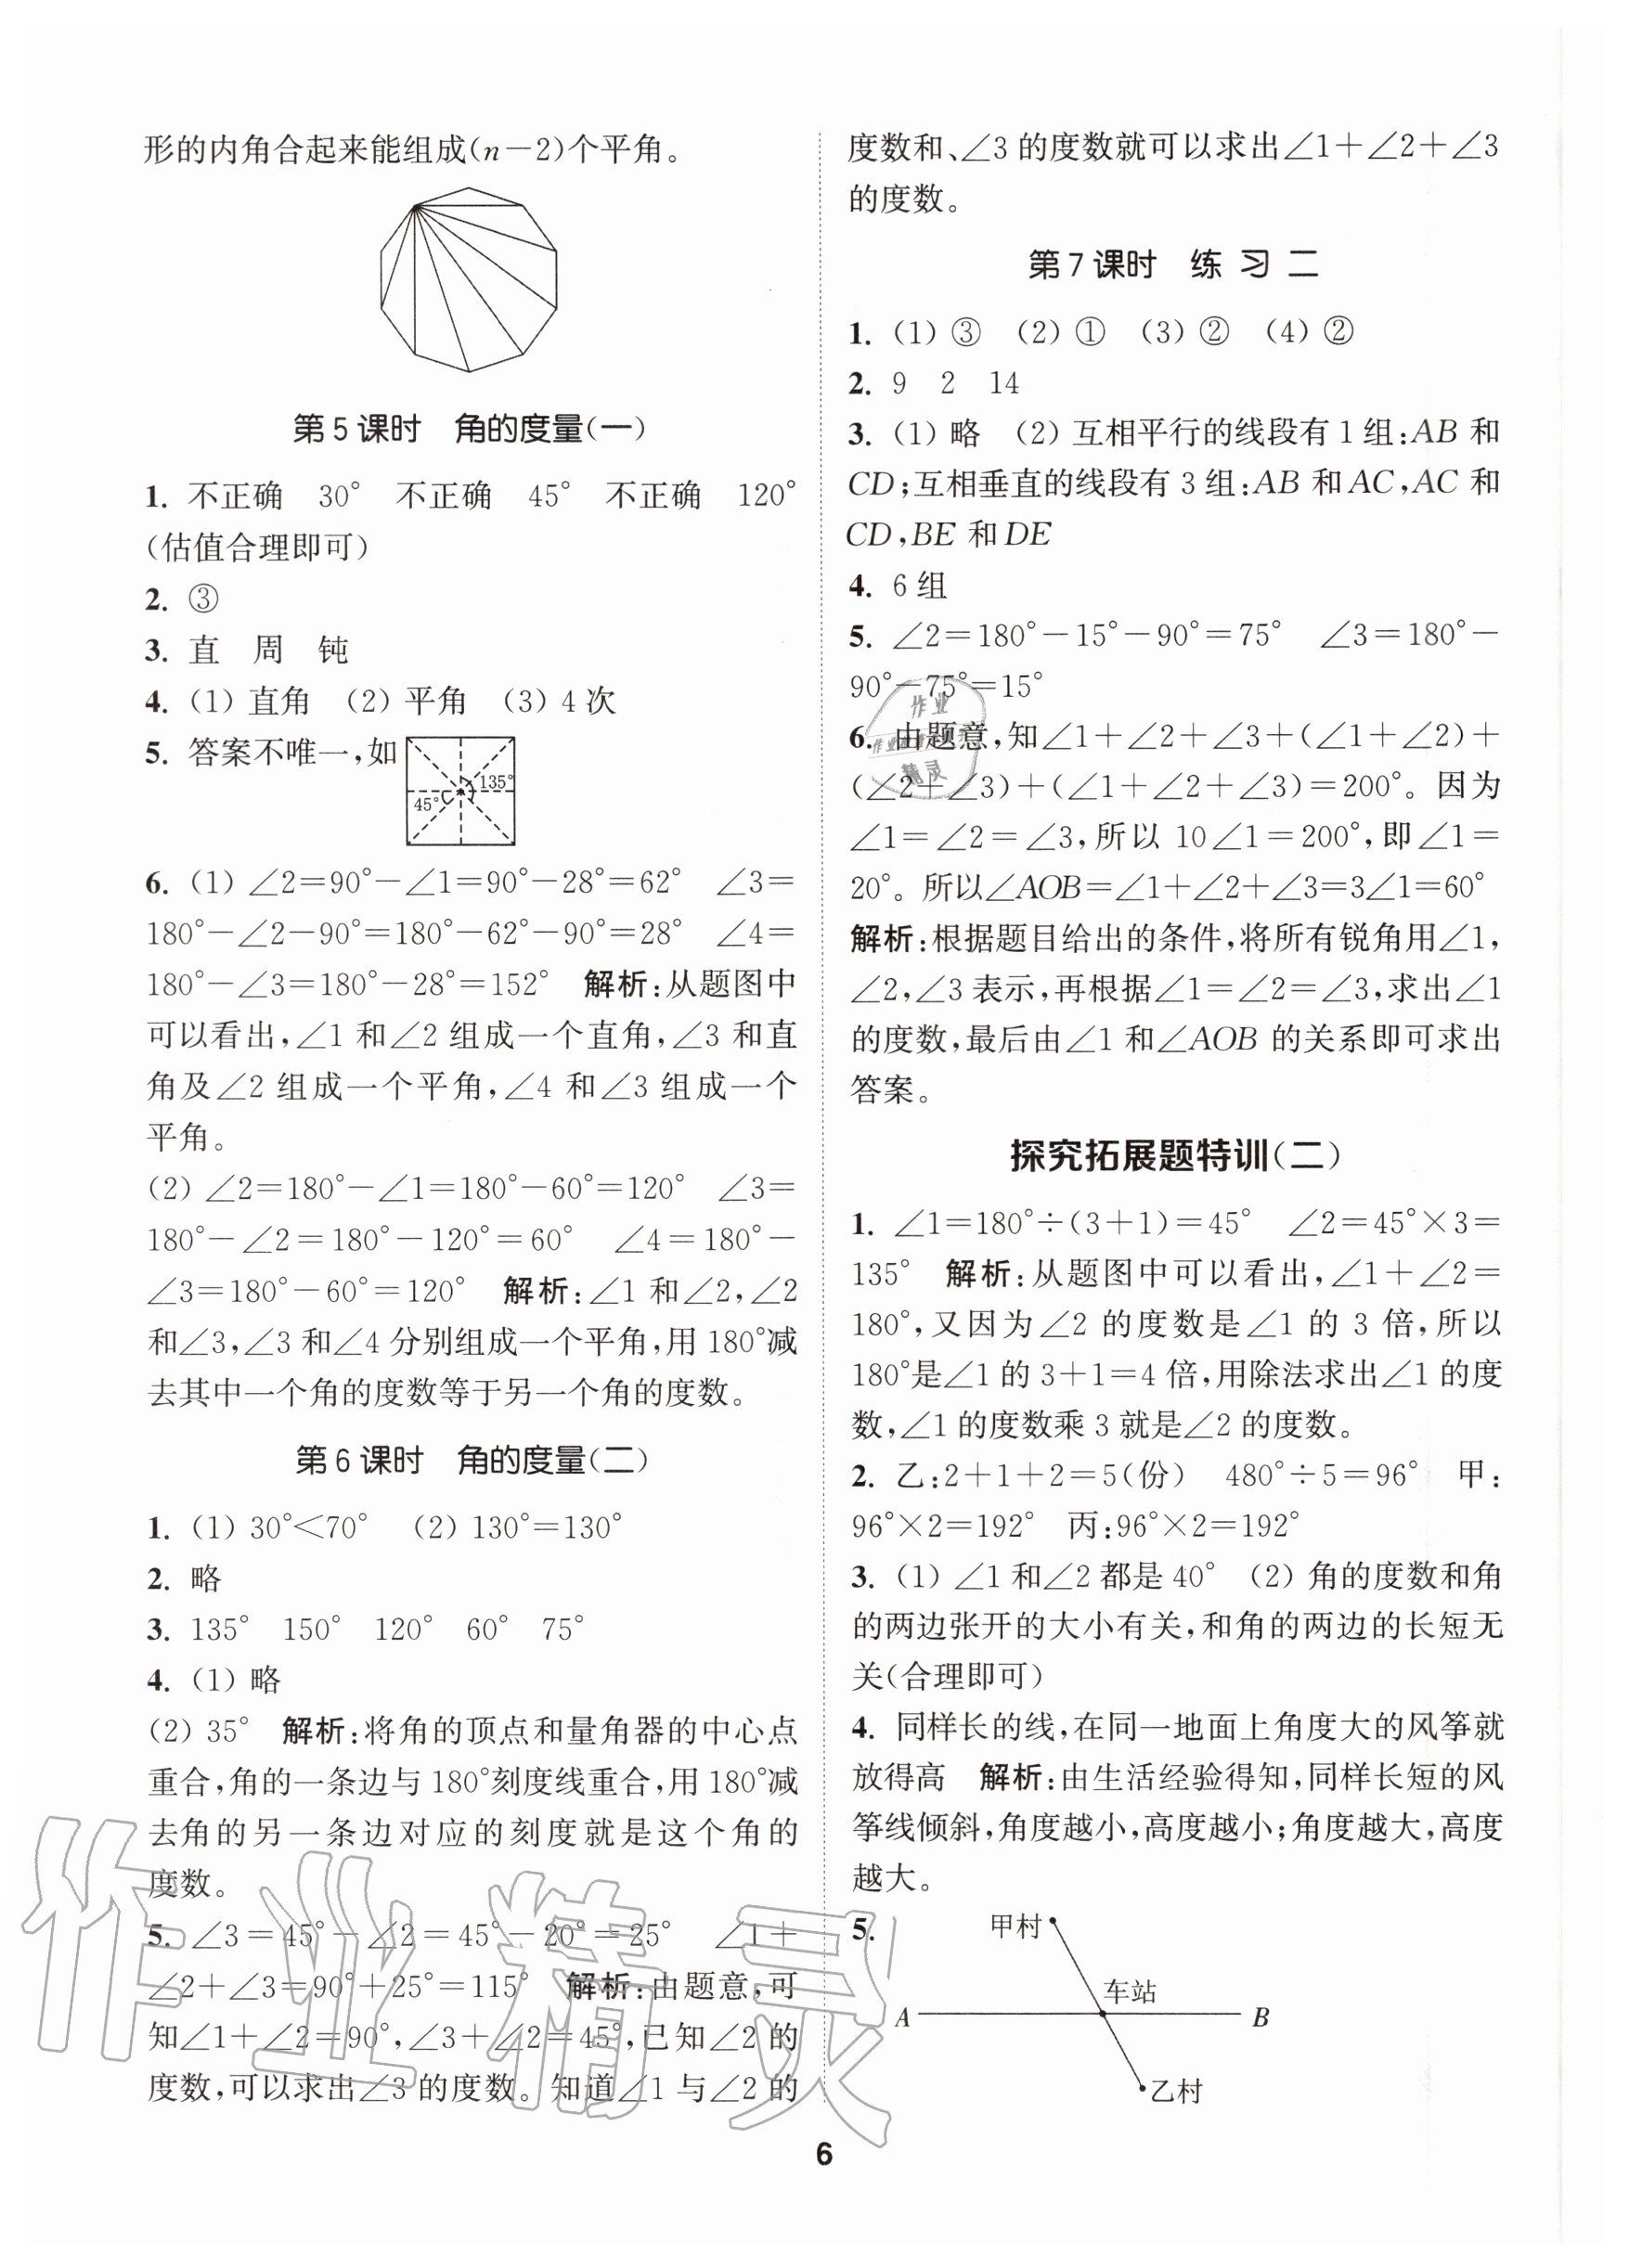 形的内角合起来能组成(n－2)个平角。
第5课时　角的度量(一)
1. 不正确　30°　不正确　45°　不正确　120°
(估值合理即可)
2. ③
3. 直　周　钝
4. (1) 直角　(2) 平角　(3) 4 次
5. 答案不唯一,如
135°
45°
6. (1) ∠2＝90°－∠1＝90°－28°＝62°　∠3＝
180°－∠2－90°＝180°－62°－90°＝28°　∠4＝
180°－∠3＝180°－28°＝152°　解析:从题图中
可以看出,∠1 和∠2 组成一个直角,∠3 和直
角及∠2 组成一个平角,∠4 和∠3 组成一个
平角。
(2) ∠2＝180°－∠1＝180°－60°＝120°　∠3＝
180°－∠2＝180°－120°＝60°　∠4＝180°－
∠3＝180°－60°＝120°　解析:∠1 和∠2,∠2
和∠3,∠3 和∠4 分别组成一个平角,用 180°减
去其中一个角的度数等于另一个角的度数。
第6课时　角的度量(二)
1. (1) 30°＜70°　(2) 130°＝130°
2. 略
3. 135°　150°　120°　60°　75°
4. (1) 略
(2) 35°　解析:将角的顶点和量角器的中心点
重合,角的一条边与 180°刻度线重合,用 180°减
去角的另一条边对应的刻度就是这个角的
度数。
5. ∠3＝45°－∠2＝45°－20°＝25°　∠1＋
∠2＋∠3＝90°＋25°＝115°　解析:由题意,可
知∠1＋∠2＝90°,∠3＋∠2＝45°,已知∠2 的
度数,可以求出∠3 的度数。知道∠1 与∠2 的
度数和、∠3 的度数就可以求出∠1＋∠2＋∠3
的度数。
第7课时　练 习 二
1. (1) ③　(2) ①　(3) ②　(4) ②
2. 9　2　14
3. (1) 略　(2) 互相平行的线段有 1 组:AB 和
CD;互相垂直的线段有 3 组:AB 和 AC,AC 和
CD,BE 和 DE
4. 6 组
5. ∠2＝180°－15°－90°＝75°　∠3＝180°－
90°－75°＝15°
6. 由题意,知∠1＋∠2＋∠3＋(∠1＋∠2)＋
(∠2＋∠3)＋(∠1＋∠2＋∠3)＝200°。因为
∠1＝∠2＝∠3,所以 10∠1＝200°,即∠1＝
20°。所以∠AOB＝∠1＋∠2＋∠3＝3∠1＝60°
解析:根据题目给出的条件,将所有锐角用∠1,
∠2,∠3 表示,再根据∠1＝∠2＝∠3,求出∠1
的度数,最后由∠1 和∠AOB 的关系即可求出
答案。
探究拓展题特训(二)
1. ∠1＝180°÷(3＋1)＝45°　∠2＝45°×3＝
135°　解析:从题图中可以看出,∠1＋∠2＝
180°,又因为∠2 的度数是∠1 的 3 倍,所以
180°是∠1 的 3＋1＝4 倍,用除法求出∠1 的度
数,∠1 的度数乘 3 就是∠2 的度数。
2. 乙:2＋1＋2＝5(份)　480°÷5＝96°　甲:
96°×2＝192°　丙:96°×2＝192°
3. (1) ∠1 和∠2 都是 40°　(2) 角的度数和角
的两边张开的大小有关,和角的两边的长短无
关(合理即可)
4. 同样长的线,在同一地面上角度大的风筝就
放得高　解析:由生活经验得知,同样长短的风
筝线倾斜,角度越小,高度越小;角度越大,高度
越大。
5.
甲村
车站
A
B
乙村
6
作业精灵
作业
精灵